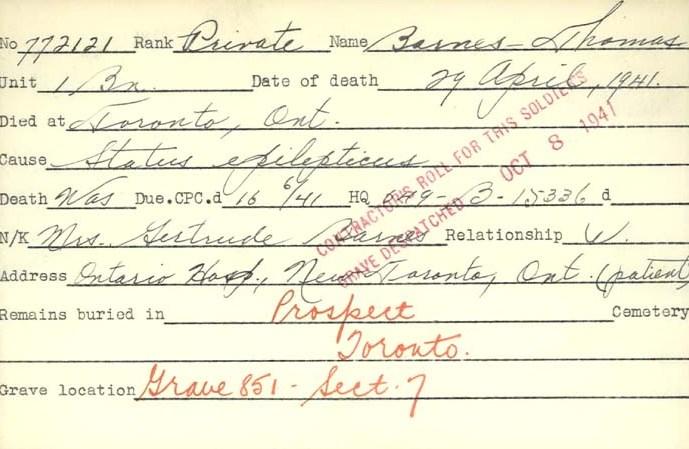 No 772121 Rank Private Name Barnes - Thomas
Unit 1 Bn. Date of death 29 April, 1941.
Died at Toronto, Ont.
Cause Status epilepticus
Death Was Due.CPC.d 16 6/41 HQ 649-B-15336 d
N/K Mrs. Gertrude Barnes Relationship W.
Address Ontario Hosp., New Toronto, Ont. (patient)
Remains buried in Prospect Cemetery
Toronto.
Grave location Grave 851 - Sect. 7
CONTRACTOR'S ROLL FOR THIS SOLDIER'S
GRAVE DESPATCHED OCT 8 1941